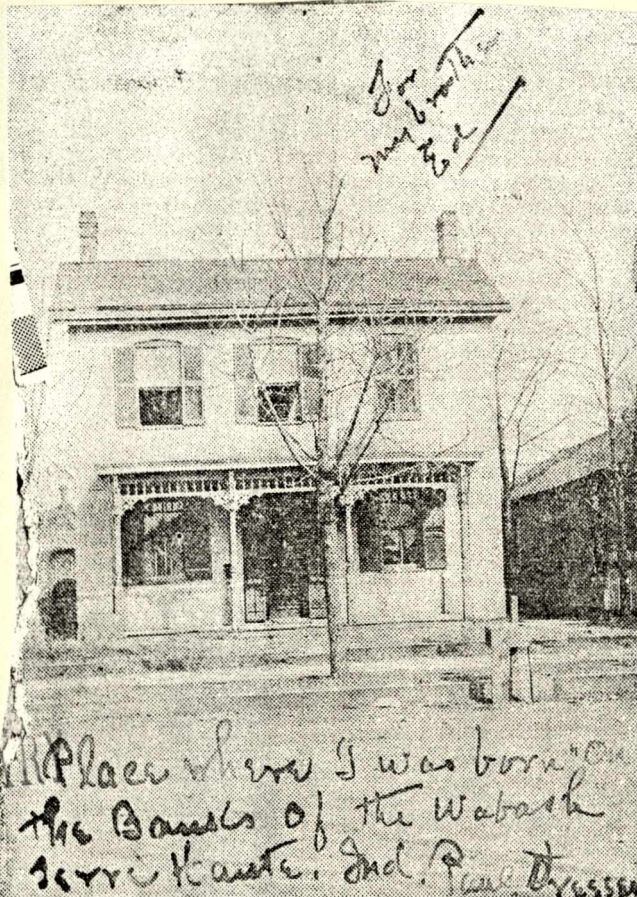 For
my brother
Ed
Place where I was born "On
the Banks of the Wabash
Terre Haute. Ind. Paul Dresser